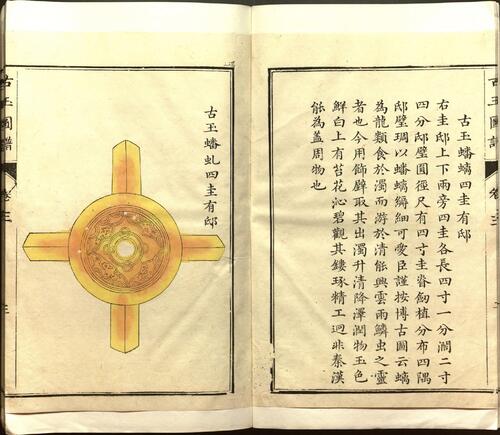 古玉圖譜
卷三
古玉蟠螭四圭有邸
右圭邸上下兩旁四圭各長四寸一分濶二寸
四分邸璧圓徑尺有四寸圭脊劎植分布四隅
邸璧琱以蟠螭纈細可愛臣謹按博古圖云螭
為龍類食於濁而游於清能興雲雨鱗虫之靈
者也今用飾辟取其出濁升清降澤潤物玉色
鮮白上有苔花沁碧觀其鏤琢精工迥非秦漢
能為蓋周物也
古玉蟠虬四圭有邸
古玉圖譜
卷三
三